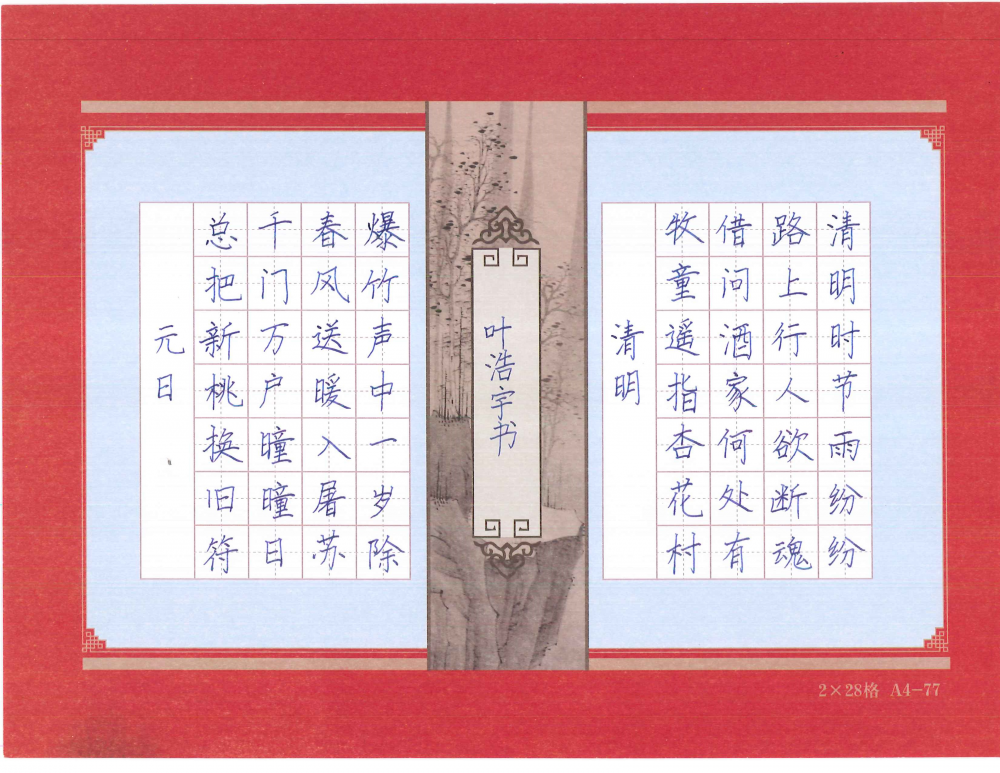 清明时节雨纷纷
路上行人欲断魂
借问酒家何处有
牧童遥指杏花村
清明
叶浩宇书
爆竹声中一岁除
春风送暖入屠苏
千门万户曈曈日
总把新桃换旧符
元日
2×28格 A4-77